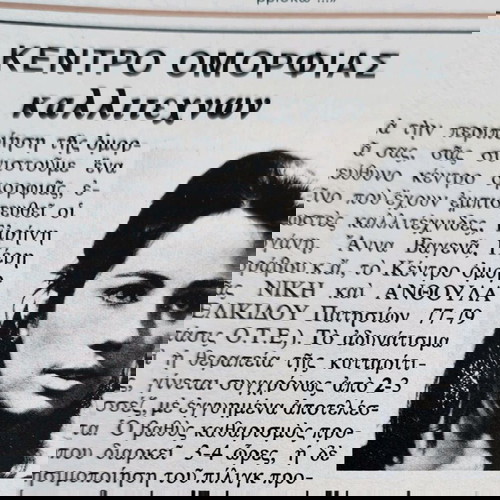 ΚΕΝΤΡΟ ΟΜΟΡΦΙΑΣ
καλλιτεχνων
ὰ τὴν περιποί
ίηση τῆς ὀμορ
ᾶ σας, σᾶς συνιστοῦμε ἕνα
εύθυνο κέντρο
ὀμορφιᾶς, ἐ
ῖνο ποὺ ἔχουν ἐμπισ
ευθεῖ οἱ
καλλιτέχνιδες, Εἰρήνη
Ἄννα Βαγενᾶ,
κ.ἄ., τὸ Κέντρο ὀμορ
ΝΙΚΗ καὶ ΑΝΘΟΥΛΑ
Πατησίων 77-79
Ο.Τ.Ε.). Τὸ ἀδυνάτισμα
ἡ θεραπεία τῆς κυταρίτι-
γίνεται συγχρόνως ἀπὸ 2-3
μὲ ἐγγυημένα ἀποτελέσ-
τα. Ὁ βαθὺς καθαρισμὸς προ-
που διαρκεῖ 3-4 ὧρες, ἡ δὲ
ησιμοποίηση τοῦ πίλιγκ προ-